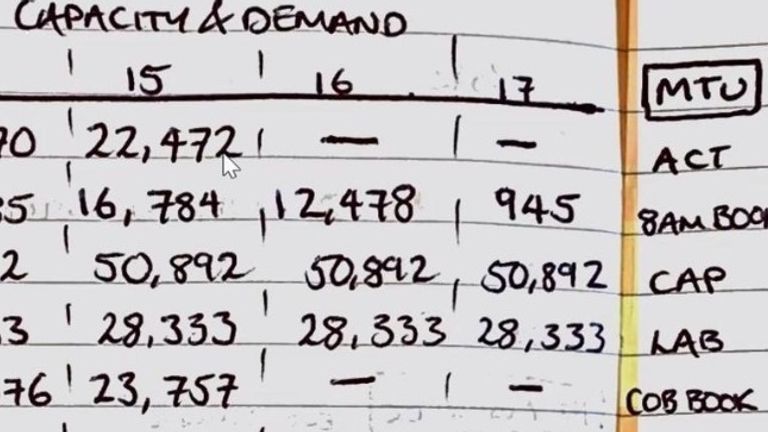 CAPACITY & DEMAND
15 16 17 MTU
70 22,472 — — ACT
85 16,784 12,478 945 8AM BOOK
2 50,892 50,892 50,892 CAP
3 28,333 28,333 28,333 LAB
76 23,757 — — COB BOOK